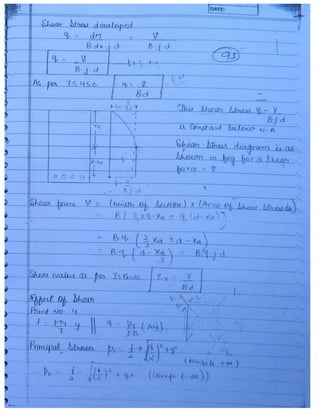 DATE:
Shear Stress developed
q = dM / B·dx·j·d = V / B·j·d
(93)
q = V / B·j·d
As per IS 456 q = V / Bd
This Shear Stress q = V / Bjd
is constant below N·A
Shear Stress diagram is as
shown in fig for a Shear
force = V
q = V / B·j·d
o o o o
Shear force V = (width of Section) × (Area of Shear Stresses)
= B( 2/3 xa × q + q (d-xa))
= B q ( 2/3 xa + d - xa)
= B q ( d - xa/3 ) = B·q·j·d
Shear value as per IS Code τv = V / Bd
Effect of Shear
Point No. 4
Principal Stresses P1 =
(tensile +ve)
P2 = (comp (-ve))